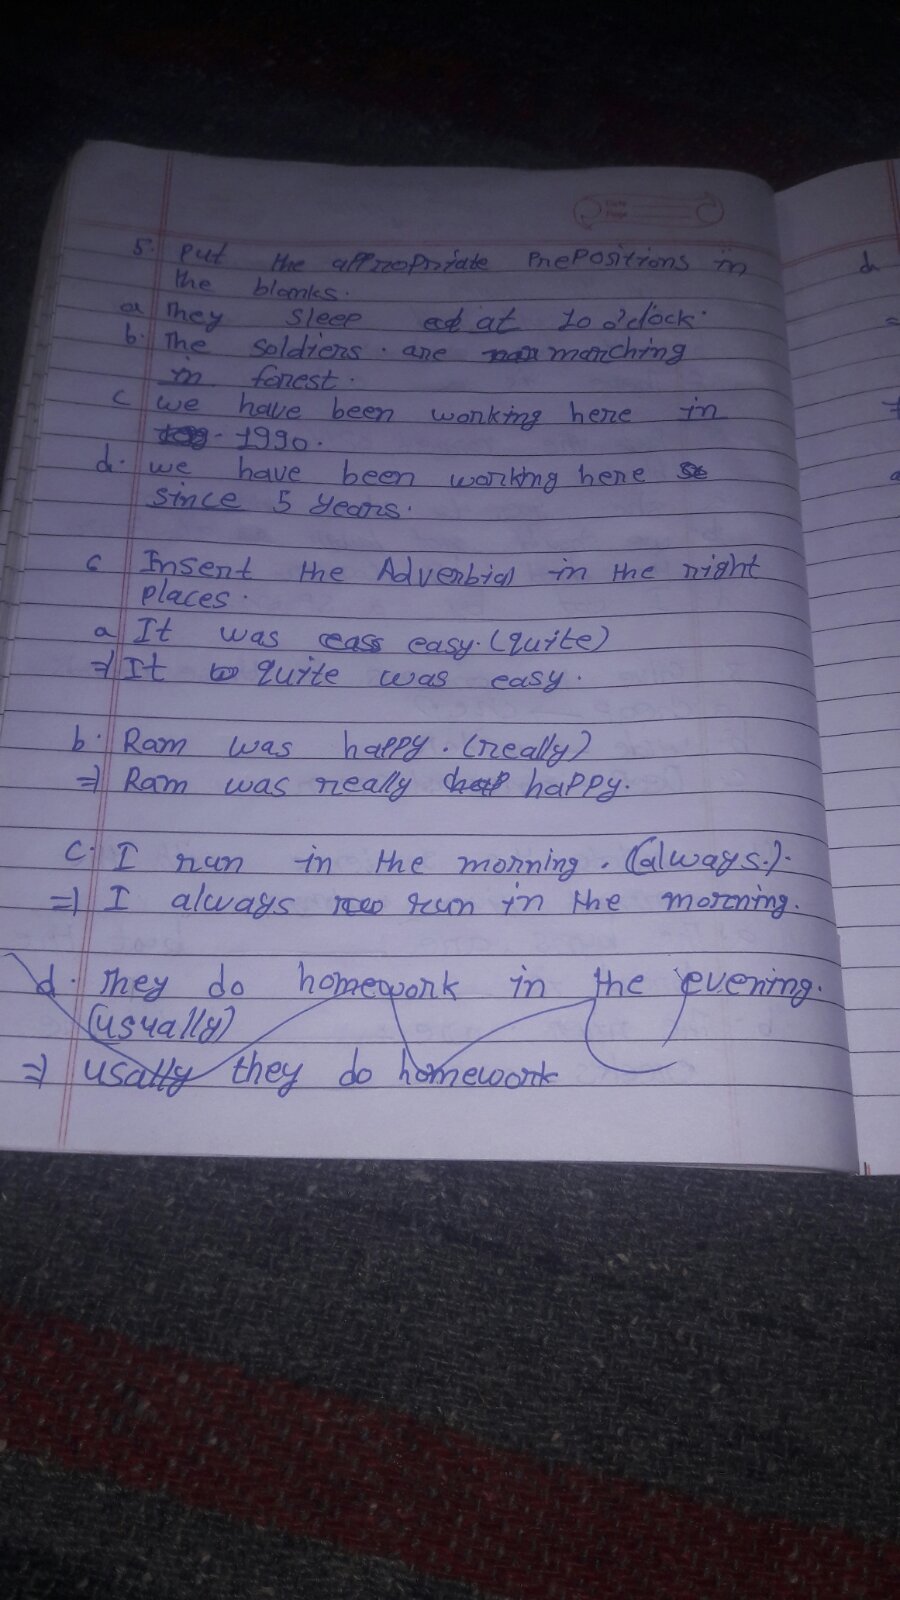 5. Put the appropriate Prepositions in
the blanks.
a They sleep at 10 o'clock.
b. The soldiers are marching
in forest.
c we have been working here in
1990.
d. we have been working here
since 5 years.
c Insert the Adverbial in the right
places.
a It was easy. (quite)
⇒ It quite was easy.
b. Ram was happy. (really)
⇒ Ram was really happy.
c. I run in the morning. (always.).
⇒ I always run in the morning.
d. They do homework in the evening.
(usually)
⇒ usally they do homework